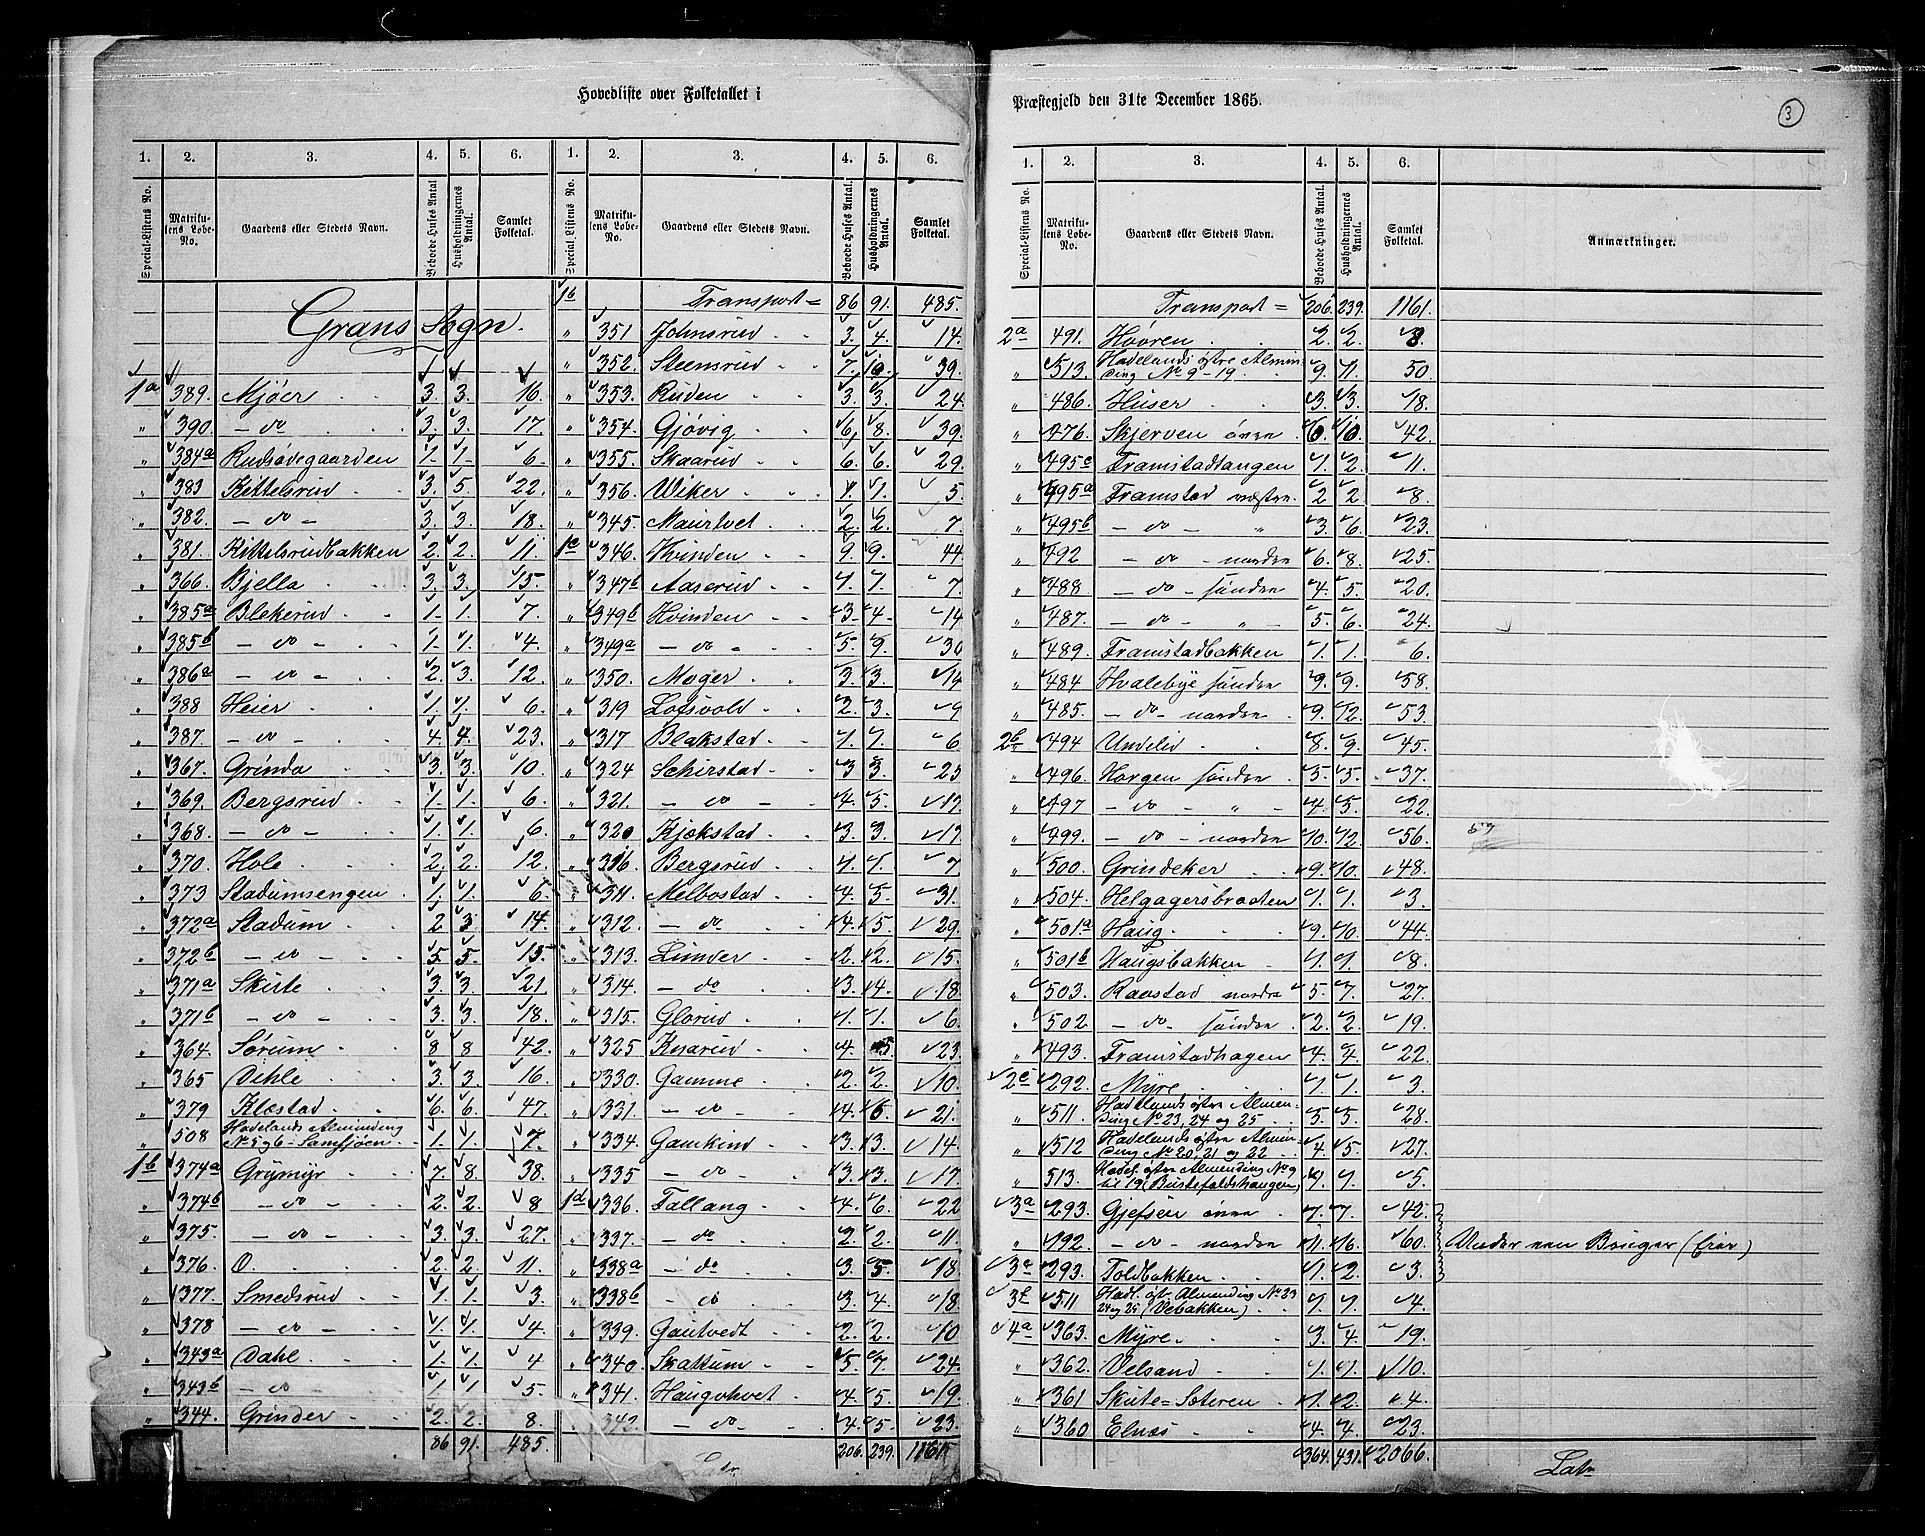 Hovedliste over Folketallet i
1. 2. 3. 4. 5. 6. 1. 2. 3. 4. 5. 6.
Special-Listens No. Matrikulens Løbe-No. Gaardens eller Stedets Navn. Beboede Huses Antal Husholdningernes Antal. Samlet Folketal. Special Listens No. Matrikulens Løbe-No. Gaardens eller Stedets Navn. Beboede Huses Antal. Husholdningernes Antal. Samlet Folketal.
Grans Sogn.
1a 389. Mjøer 3. 3. 16.
" 390. - do 3. 3. 17.
" 384a Rudsødegaarden 1. 1. 6.
" 383 Kittelsrud 3. 5. 22.
" 382. - do - 3. 3. 18.
" 381. Kittelsrudbakken 2. 2. 11.
" 366. Bjella 3. 3. 15.
" 385a Blekerud 1. 1. 7.
" 385b - do - 1. 1. 4.
" 386a - do - 2. 3. 12.
" 388 Heier 1. 1. 6.
" 387. - do - 4. 4. 23.
" 367. Grinda 3. 3. 10.
" 369. Bergsrud 1. 1. 6.
" 368. - do - 1. 1. 6.
" 370. Hole 2. 2. 12.
" 373 Stadumsengen 1. 1. 6.
" 372a Stadum 2 3. 14.
" 372b - do - 5. 5. 15.
" 371a Skute 3. 3. 21
" 371b - do - 3. 3. 18.
" 364. Sørum 8 8 42.
" 365 Dehle 3. 3. 16.
" 379 Klæstad 6. 6. 47.
" 508 Hadelands Alminding No 5 og 6 - Samsjøen 1. 1. 7.
1b 374a Grymyr 7. 8. 38.
" 374b - do - 2. 2. 8
" 375. - do - 3. 3. 27.
" 376. O. 2. 2. 11.
" 377. Smedsrud 1. 1. 3.
" 378 - do - 1. 1. 4.
" 343a Dahl 1. 1. 4
" 343b - do - 1. 1 5.
" 344. Grinder 2. 2. 8.
86 91. 485.
1b Transport = 86 91. 485.
" 351 Johnsrud 3. 4. 14.
" 352. Steensrud 7. 10. 39.
" 353. Ruden 3. 3. 24.
" 354. Gjøvig 6. 8. 39.
" 355. Skaarud 6. 6. 29.
" 356. Wiker 1. 1. 5.
" 345. Maurtvet 2. 2. 7.
1c 346. Hvinden 9. 9. 44.
" 347b Aaserud 1. 1. 7.
" 349b Hvinden 3. 4. 14
" 349a - do - 5. 9. 30
" 350. Moger 3. 3. 14
" 319 Lofsvold 2. 3. 9
" 317 Blakstad 1. 1. 6
" 324 Schirstad 3 3. 25
" 321. - do - 4. 5. 17.
" 320 Kjekstad 3. 3. 17.
" 316. Bergsrud 1. 1. 7
" 311. Melbostad 4. 5. 31.
" 312. - do 4. 5. 29.
" 313. Lunder 2. 2. 15.
" 314. - do 3. 4. 18.
" 315. Glorud 1. 1. 6.
" 325 Knarud 4. 5 23.
" 330. Gamme 2. 2. 10.
" 331. - do - 4. 6. 21.
" 334. Gamkind 3. 3. 14.
" 335 - do 3. 3. 17.
1d 336. Tallang 4. 6. 22
" 337. - do 2. 2. 11.
" 338a - do 3. 5. 18.
" 338b - do 3. 4. 18.
" 339. Gautvedt 2. 2. 10
" 340. Skattum 5. 7. 24.
" 341. Haugohvet 4. 5. 19.
" 342. - do - 4. 5. 23.
206. 239. 1161
Lat.
Præstegjeld den 31te December 1865.
3
1. 2. 3. 4. 5. 6.
Special-Listens No. Matrikulens Løbe-No. Gaardens eller Stedets Navn. Beboede Huses Antal. Husholdningernes Antal. Samlet Folketal. Anmærkninger.
Transport = 206. 239. 1161.
2a 491. Hovren 2. 2. 8.
" 513. Hadelands østre Alminding No 9-19 9. 11. 50.
" 486. Huser 3. 3. 18.
" 476. Skjerven øvre 6. 10. 42.
" 495c Framstadtangen 1. 2. 11.
" 495a Framstad vestre 2 2. 8.
" 495b - do - " 3. 6. 23.
" 492 - do - nordre 6. 8. 25.
" 488 - do - søndre 4. 5. 20.
" 487. - do - " - 5. 6. 24.
" 489. Framstadbakken 1. 1. 6.
" 484 Hvalebye søndre 9. 9. 58.
" 485. - do - nordre 9. 12. 53.
2b 494 Undelid 8. 9. 45.
" 496. Horgen søndre 5. 5. 37.
" 497 - do - " - 4. 5. 22.
" 499. - do - nordre 10. 12. 56. 57
" 500. Grindeker 9. 10. 48.
" 504. Helgagersbraaten 1. 1. 3.
" 501a Haug 9. 10. 44.
" 501b Haugsbakken 1. 1. 8.
" 503. Raastad nordre 5. 7. 27.
" 502. - do - søndre 2. 2. 19.
" 493. Framstadhagen 4. 4. 22.
2c 292. Myre 1. 1. 3.
" 511. Hadelands østre Almending No 23, 24 og 25 5. 5. 28.
" 512 Hadelands østre Alminding No 20, 21 og 22 4. 5. 27.
" 513. Hadel. østre Almending No 9 til 19 (Bustefaldshaugen) 1. 1. 5.
3a 293. Gjefsen øvre 7. 7. 42.
" 192. - do - nordre 11. 16. 60. Under een Bruger (Eier)
3a 293. Toldbakken 1. 2. 3.
3b 511 Hadl. østr. Almending No 23 24 og 25 (Vebakken) 1. 1. 4.
4a 363. Myre 3. 4. 19.
" 362. Velsand 1. 1. 10.
" 361 Skute-Sæteren 1. 2. 4.
" 360 Elnæs 4. 4. 23.
364. 431. 2066.
Lat.